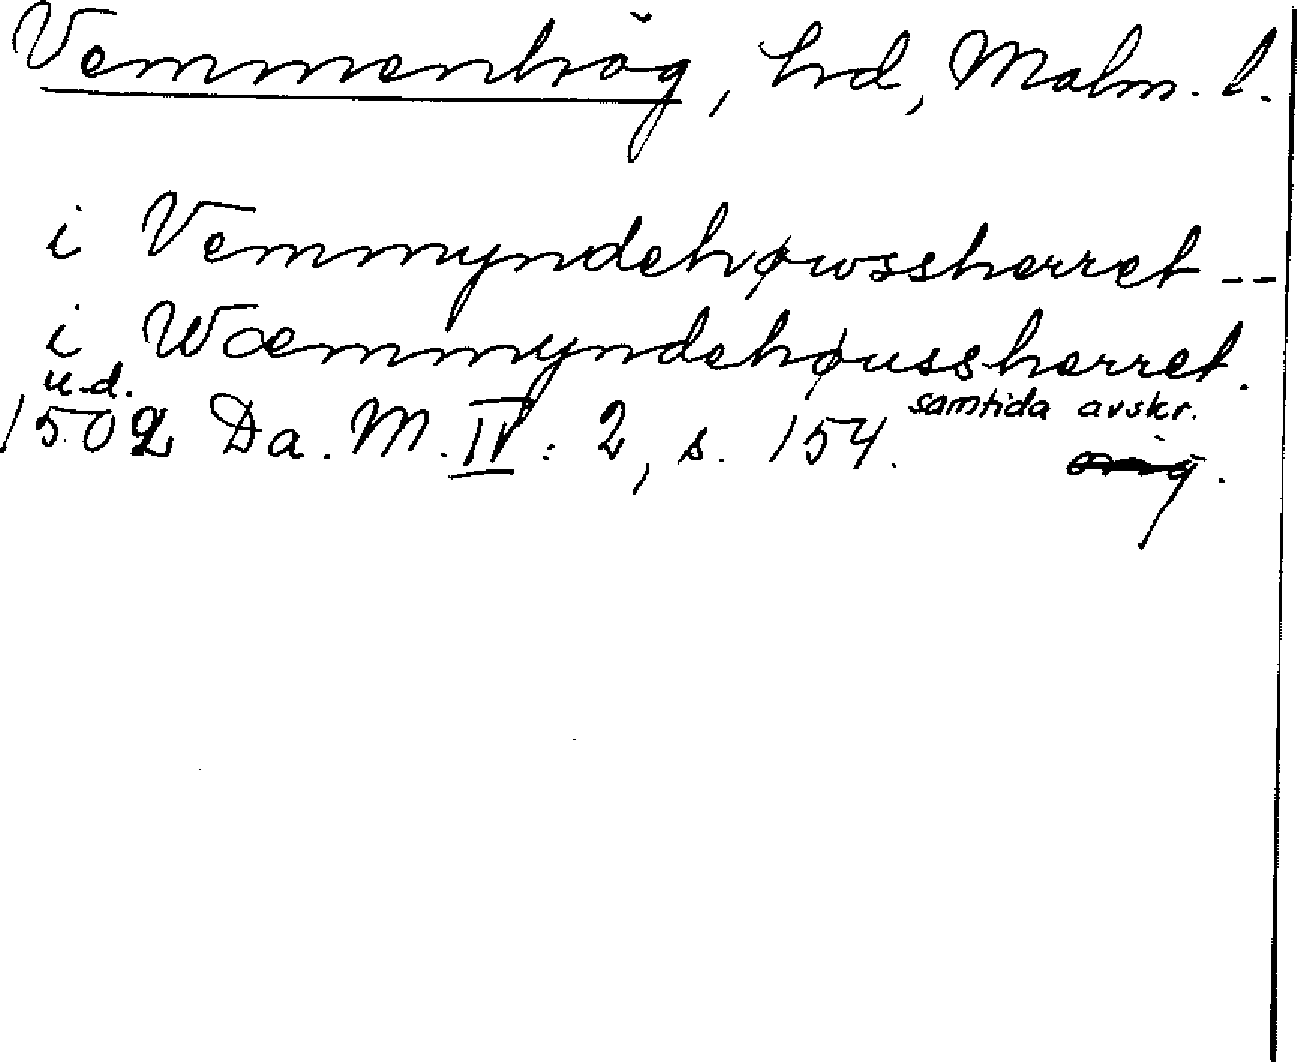 Vemmenhög, hd, Malm. l.
i Vemmyndehøwssherret --
i Wæmmyndehøussherret.
u.d.
1502 Da. M. IV: 2, s. 154. samtida avskr.